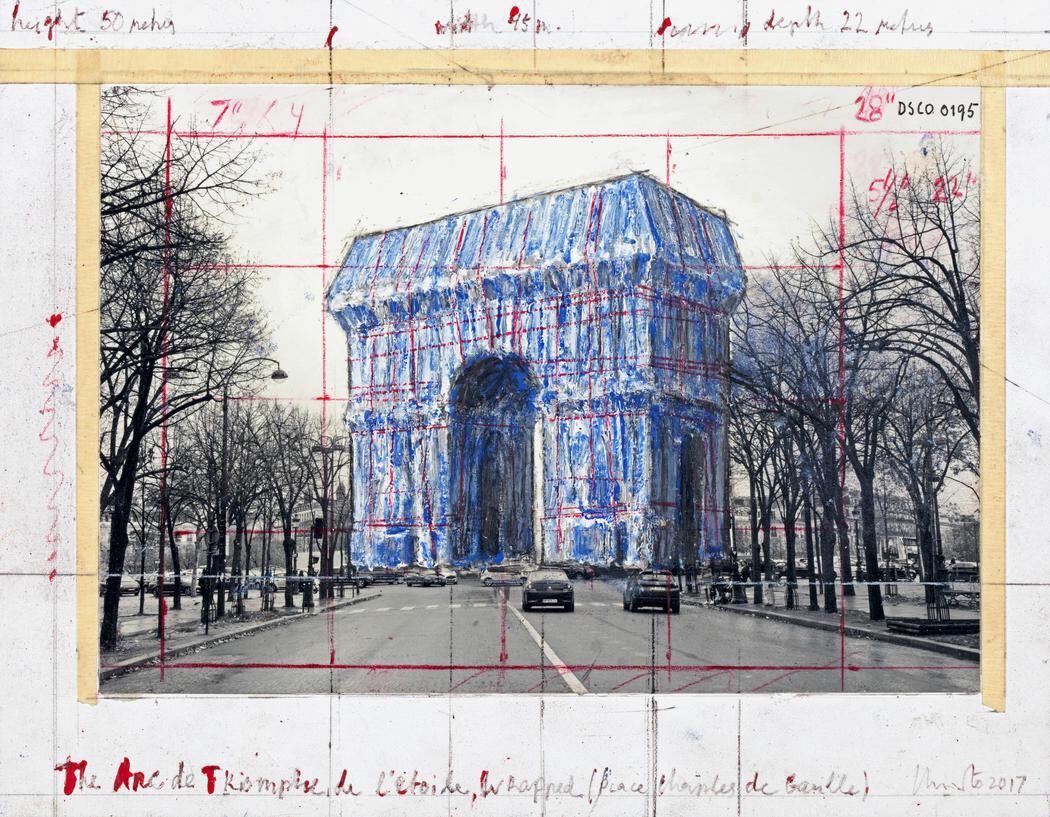 height 50 metres width 45 m. depth 22 metres
7" 28" DSCO 0195
5½" 22"
The Arc de Triomphe, de l'etoile, Wrapped (Place Charles de Gaulle) Christo 2017